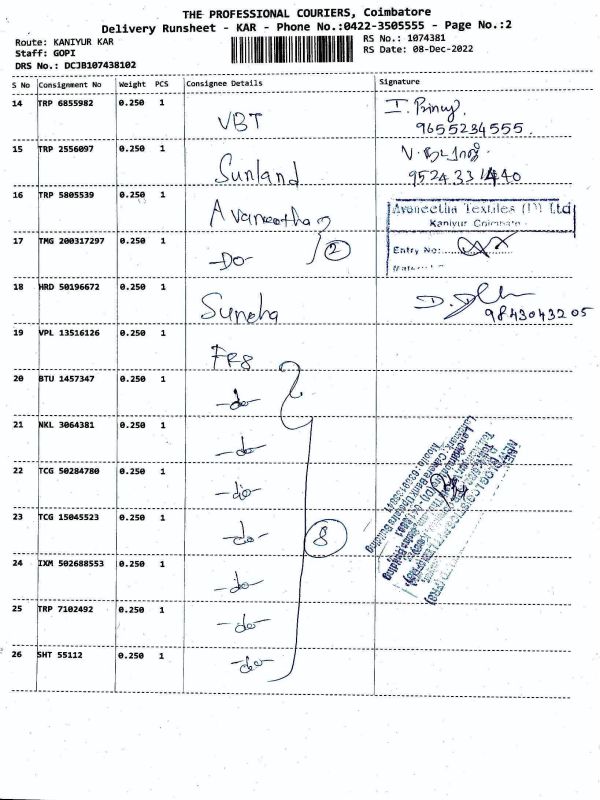 THE PROFESSIONAL COURIERS, Coimbatore
Delivery Runsheet - KAR - Phone No.:0422-3505555 - Page No.:2
Route: KANIYUR KAR
RS No.: 1074381
Staff: GOPI
RS Date: 08-Dec-2022
DRS No.: DCJB107438102
S No Consignment No Weight PCS Consignee Details Signature
14 TRP 6855982 0.250 1 VBT
9655234555.
15 TRP 2556097 0.250 1 Sunland
9524331440
16 TRP 5805539 0.250 1 Avaneetha
Avaneetha Textiles (P) Ltd
Kaniyur Coimbatore
17 TMG 200317297 0.250 1 -Do- 2
Entry No:
18 HRD 50196672 0.250 1 Suneha
9843043205
19 VPL 13516126 0.250 1 FRS
20 BTU 1457347 0.250 1 -do-
21 NKL 3064381 0.250 1 -do-
22 TCG 50284780 0.250 1 -do-
23 TCG 15045523 0.250 1 -do- 8
24 IXM 502688553 0.250 1 -do-
25 TRP 7102492 0.250 1 -do-
26 SHT 55112 0.250 1 -do-